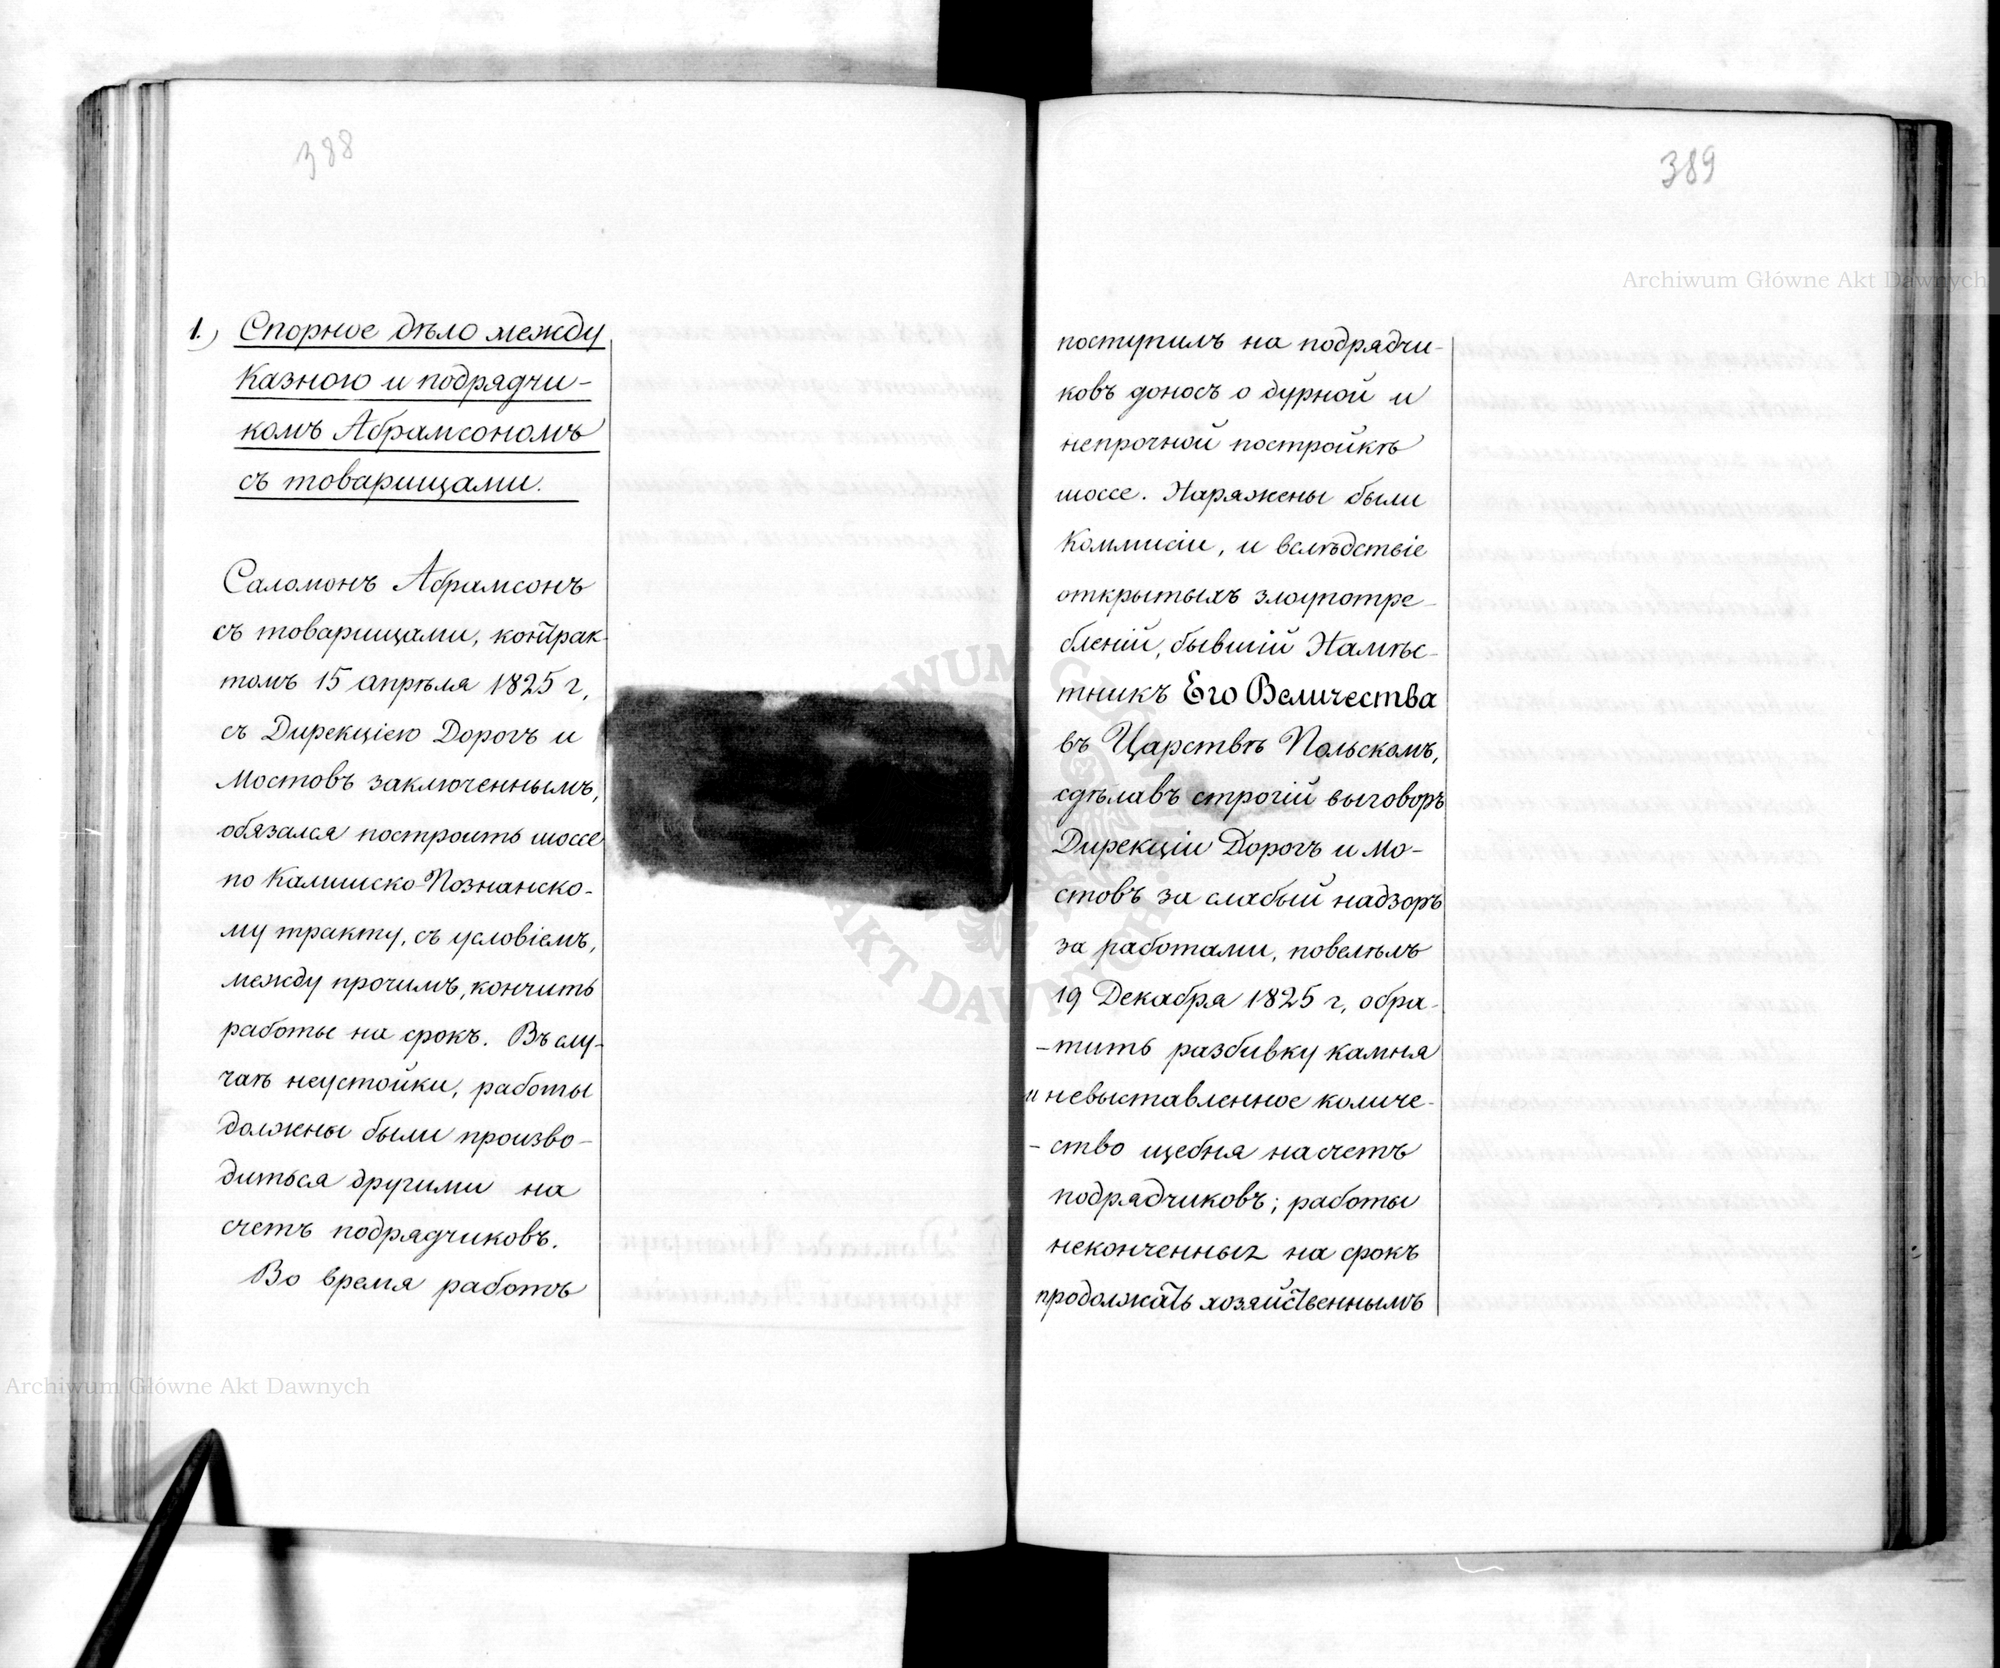 388
1.) Спорное дѣло между
Казною и подрядчи-
комъ Абрамсономъ
съ товарищами.
Саломонъ Абрамсонъ
съ товарищами, контрак-
томъ 15 апрѣля 1825 г,
съ Дирекціею Дорогъ и
Мостовъ заключеннымъ,
обязался построить шоссе
по Калишско-Познанско-
му тракту, съ условіемъ,
между прочимъ, кончить
работы на срокъ. Въ слу-
чаѣ неустойки, работы
должны были произво-
диться другими на
счетъ подрядчиковъ.
Во время работъ
389
поступилъ на подрядчи-
ковъ доносъ о дурной и
непрочной постройкѣ
шоссе. Наряжены были
Коммисіи, и вслѣдствіе
открытыхъ злоупотре-
бленій, бывшій Намѣс-
тникъ Его Величества
въ Царствѣ Польскомъ,
сдѣлавъ строгій выговоръ
Дирекціи Дорогъ и Мо-
стовъ за слабый надзоръ
за работами, повелѣлъ
19 Декабря 1825 г, обра-
-тить разбивку камня
и невыставленное количе-
-ство щебня на счетъ
подрядчиковъ; работы
неконченныя на срокъ
продолжать хозяйственнымъ
Archiwum Główne Akt Dawnych
Archiwum Główne Akt Dawnych